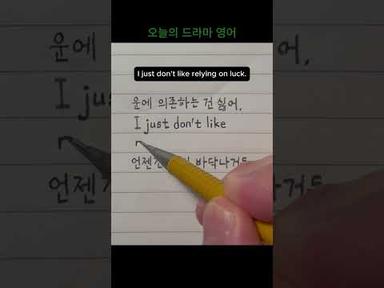 오늘의 드라마 영어
I just don't like relying on luck.
운에 의존하는 건 싫어,
I just don't like
r
언젠 바닥나거든